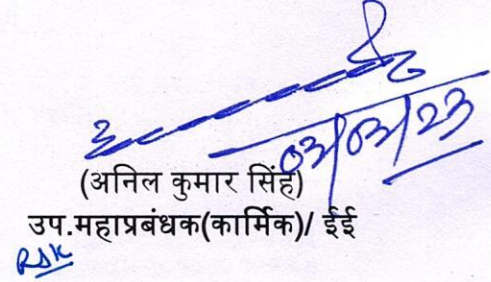 ०३/०३/२३
(अनिल कुमार सिंह)
उप.महाप्रबंधक(कार्मिक)/ ईई
RSK